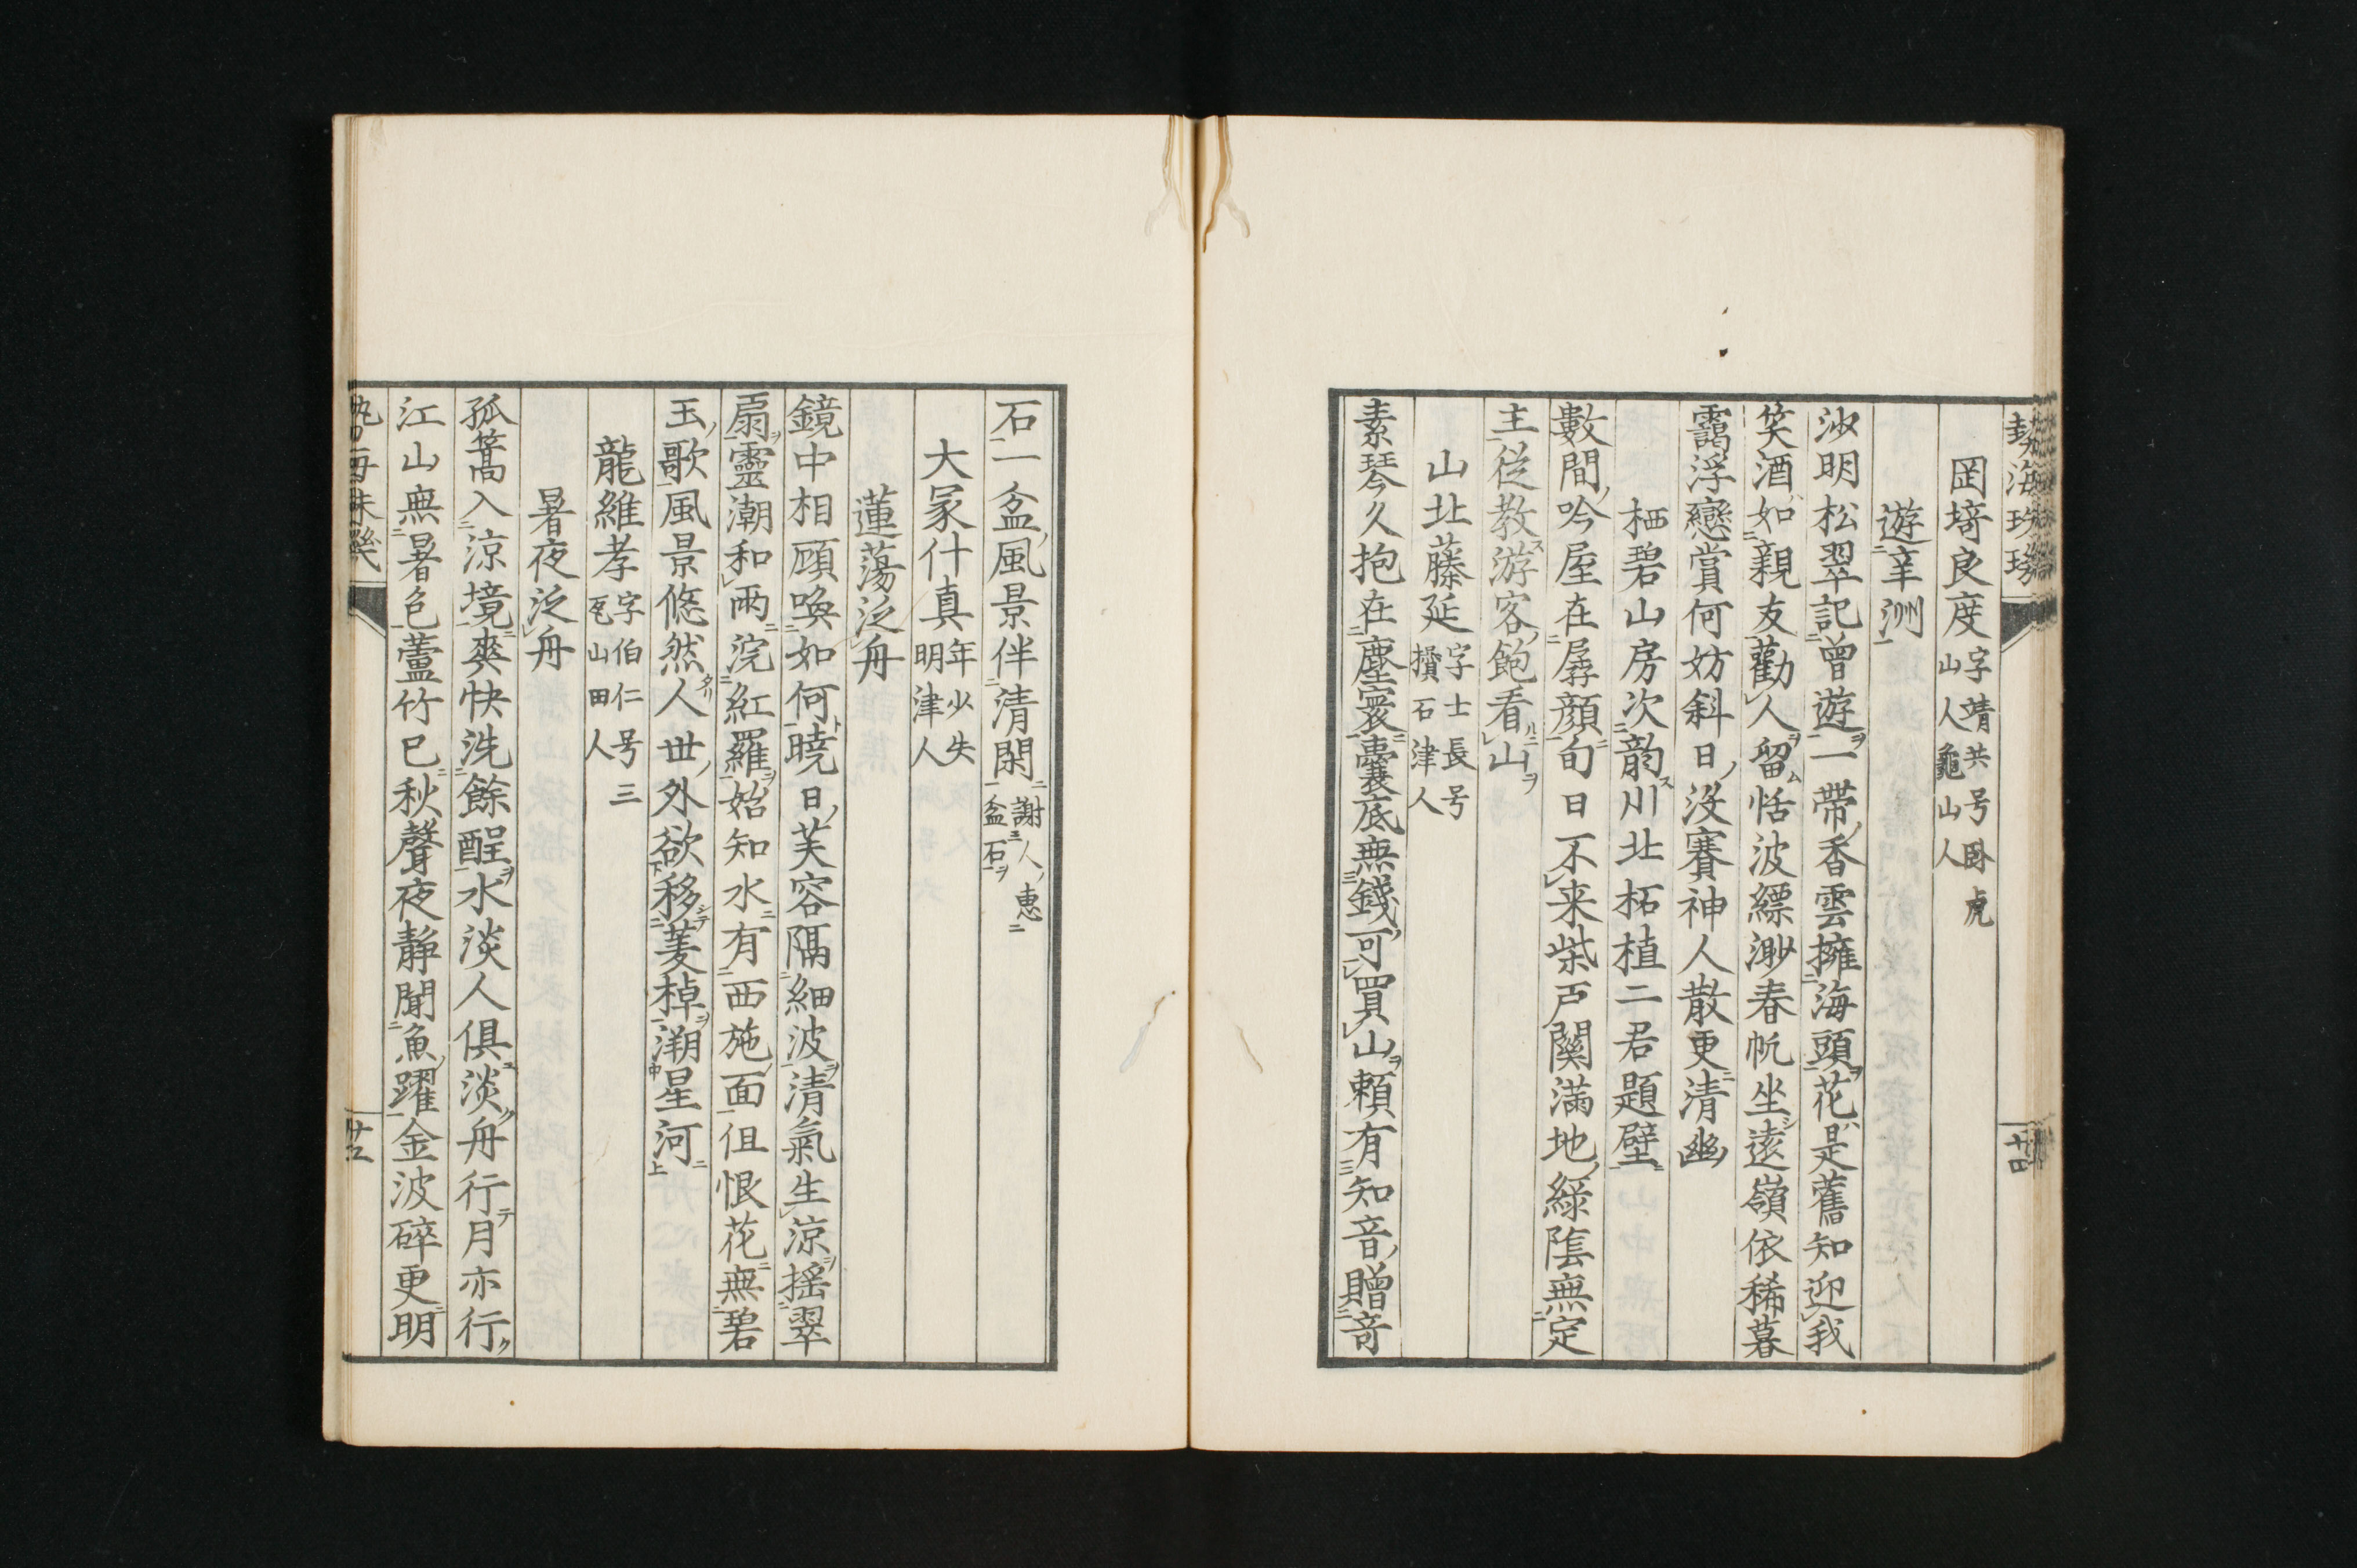 海珠璣
岡﨑良度 字靖共号卧虎山人龜山人
遊辛洲
沙明松翠記曾遊一帶香雲擁海頭花是舊知迎我
笑酒如親友勸人留恬波縹渺春帆坐遠嶺依稀暮
靄浮戀賞何妨斜日沒賽神人散更清幽
栖碧山房次韵川北柘植二君題壁
數間吟屋在孱顔旬日不来柴戸関滿地緑陰無定
主從教游客飽看山
山北藤延 字士長号攢石津人
素琴久抱在塵寰囊底無錢可買山頼有知音贈竒
十四
石一盆風景伴清閑 謝人惠盆石
大冢什真 年少失明津人
蓮蕩泛舟
鏡中相顧喚如何曉日芙容隔細波清氣生涼搖翠
扇靈潮和雨浣紅羅始知水有西施面但恨花無碧
玉歌風景悠然人世外欲移菱棹溯星河
龍維孝 字伯仁号三瓦山田人
暑夜泛舟
孤篙入涼境爽快洗餘酲水淡人俱淡舟行月亦行
江山無暑色蘆竹已秋聲夜靜聞魚躍金波碎更明